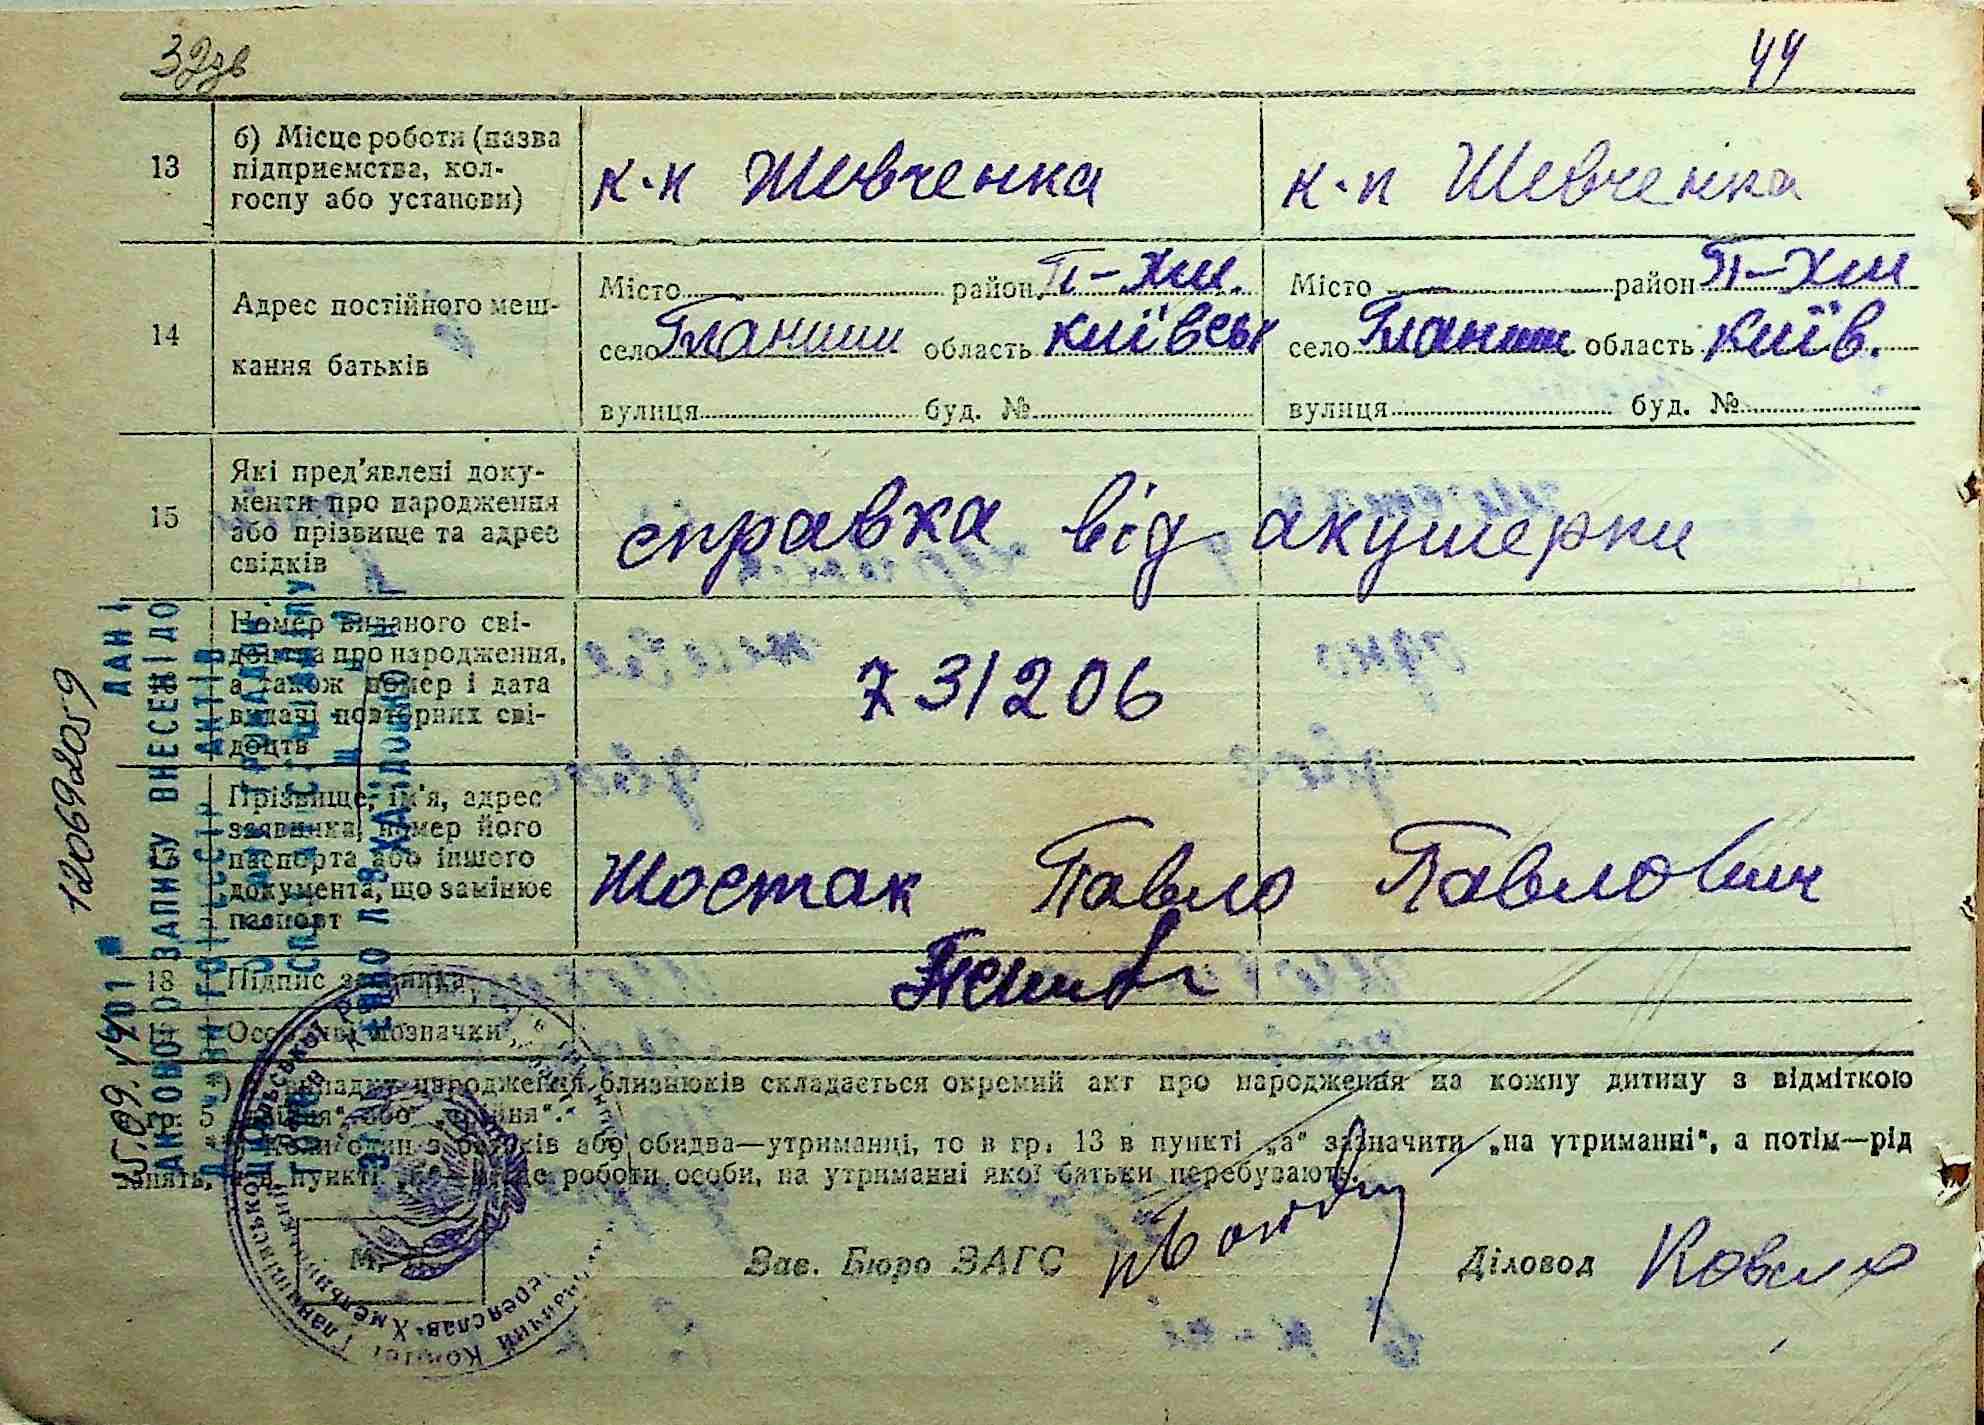 32зв
44
13
б) Місце роботи (назва
підприємства, кол-
госпу або установи)
к-п Шевченка
к-п Шевченка
14
Адрес постійного меш-
кання батьків
Місто район П-Хм.
село Гланиши область Київськ
вулиця буд. №
Місто район П-Хм
село Гланиши область Київ.
вулиця буд. №
15
Які пред'явлені доку-
менти про народження
або прізвище та адрес
свідків
справка від акушерки
Номер виданого сві-
доцтва про народження,
а також номер і дата
видачі повторних сві-
доцтв
731206
Прізвище, ім'я, адрес
заявника, номер його
паспорта або іншого
документа, що замінює
паспорт
Шостак Павло Павлович
18
Підпис заявника
Особливі позначки
*) У випадку народження близнюків складається окремий акт про народження на кожну дитину з відміткою
гр. 5 „двійня“ або „трійня“.
**) Коли один з батьків або обидва—утриманці, то в гр. 13 в пункті „а“ зазначити „на утриманні“, а потім—рід
занять, а в пункті „б“—місце роботи особи, на утриманні якої батьки перебувають.
М.
Зав. Бюро ЗАГС
Діловод
120692059
ДАНІ
АКТОВОГО ЗАПИСУ ВНЕСЕНІ ДО
АКТІВ